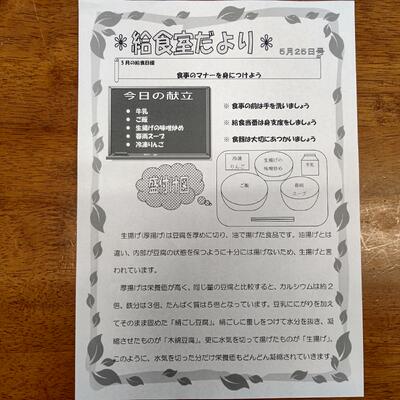 ＊給食室だより＊
5月25日号
5月の給食目標
食事のマナーを身につけよう
今日の献立
● 牛乳
● ご飯
● 生揚げの味噌炒め
● 春雨スープ
● 冷凍りんご
※ 食事の前は手を洗いましょう
※ 給食当番は身支度をしましょう
※ 食器は大切にあつかいましょう
盛付図
冷凍
りんご
生揚げの
味噌炒め
牛乳
ご飯
春雨
スープ
生揚げ(厚揚げ)は豆腐を厚めに切り、油で揚げた食品です。油揚げとは
違い、内部が豆腐の状態を保つように十分には揚げないため、生揚げと言
われています。
厚揚げは栄養価が高く、同じ量の豆腐と比較すると、カルシウムは約2
倍、鉄分は3倍、たんぱく質は5倍となっています。豆乳ににがりを加え
てそのまま固めた「絹ごし豆腐」。絹ごしに重しをつけて水分を抜き、凝
縮させたものが「木綿豆腐」。更に水気を切って揚げたものが「生揚げ」。
このように、水気を切った分だけ栄養価もどんどん凝縮されていきます。